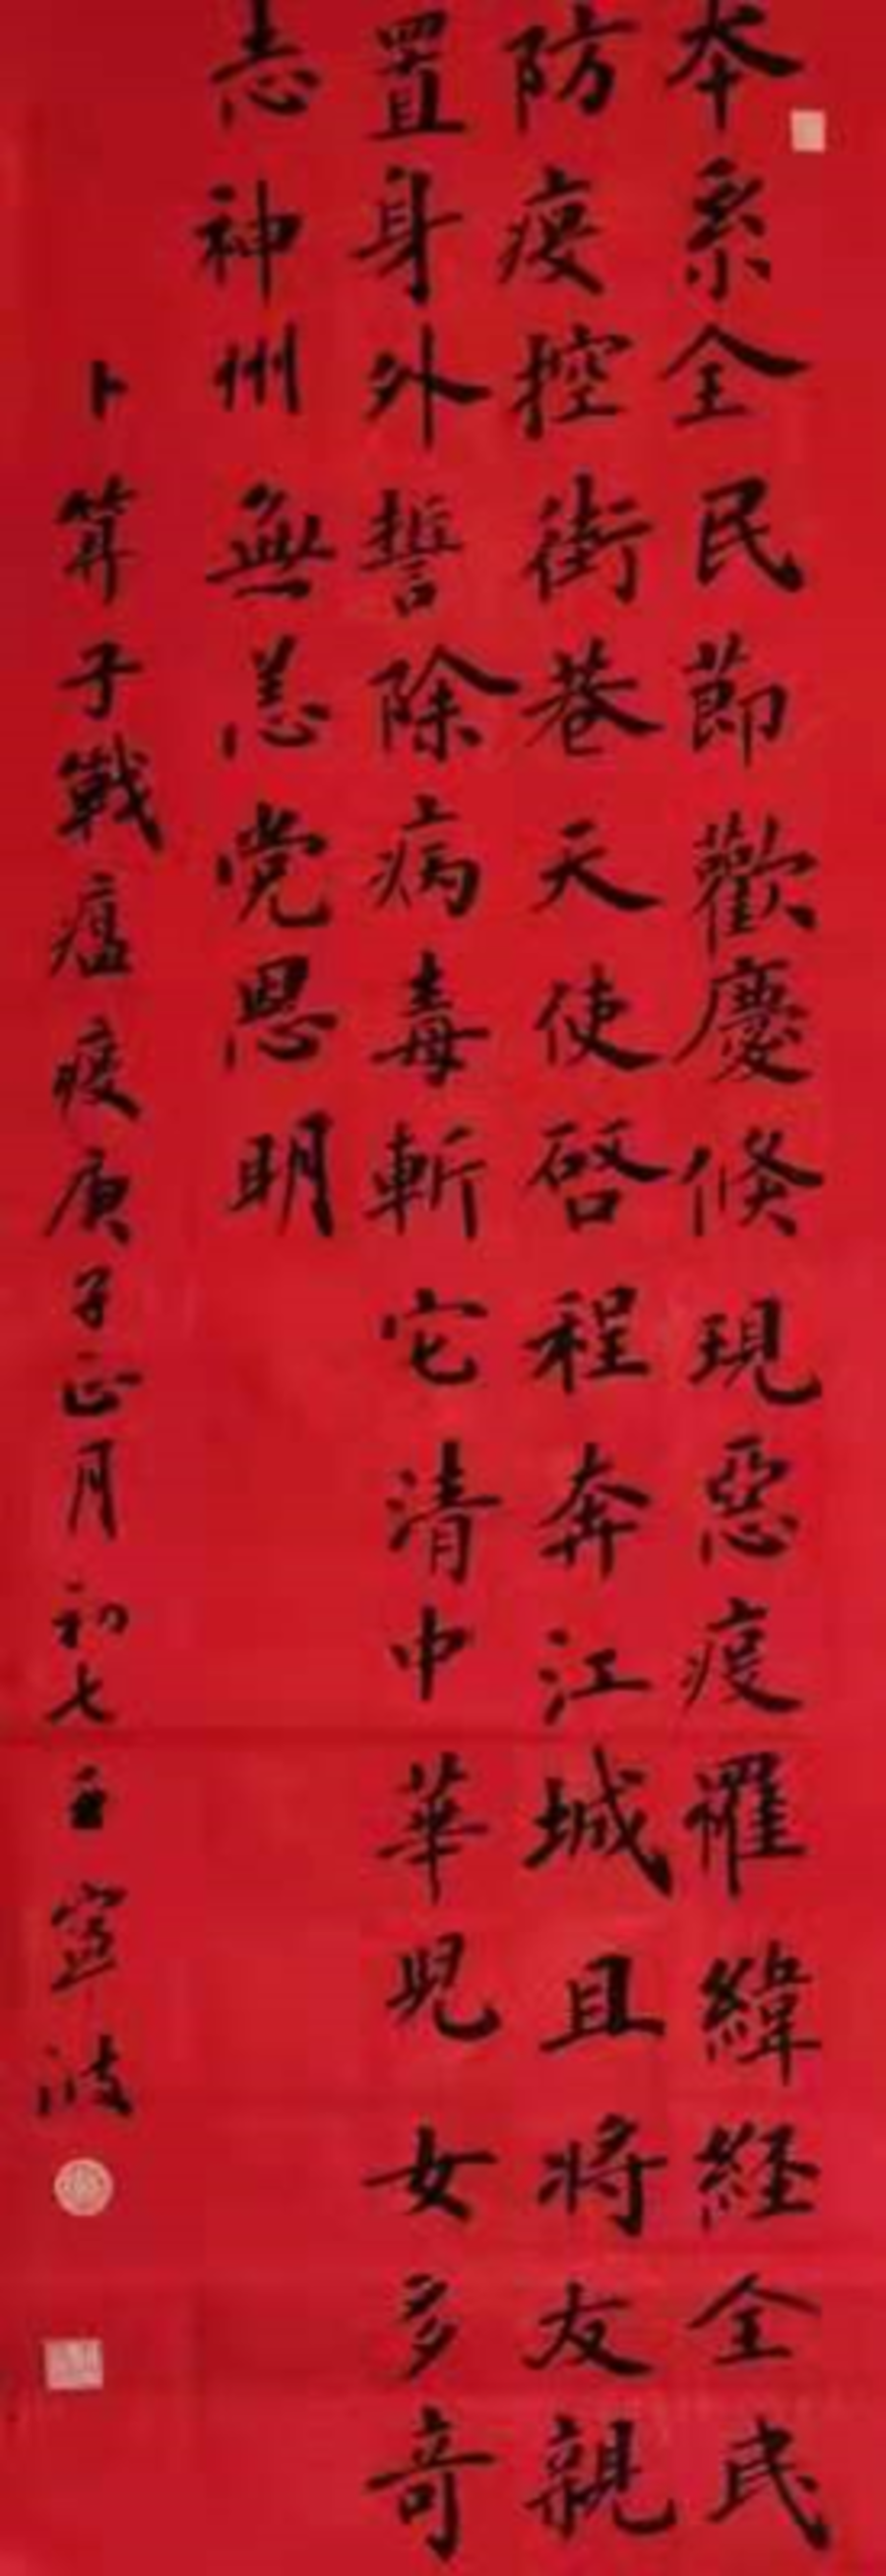 本系全民節歡慶倏現惡疫罹緯経全民
防疫控街巷天使啓程奔江城且將友親
置身外誓除病毒斬它清中華兒女多奇
志神州無恙党恩明
卜筭子戰瘟疫庚子正月初七王寧波